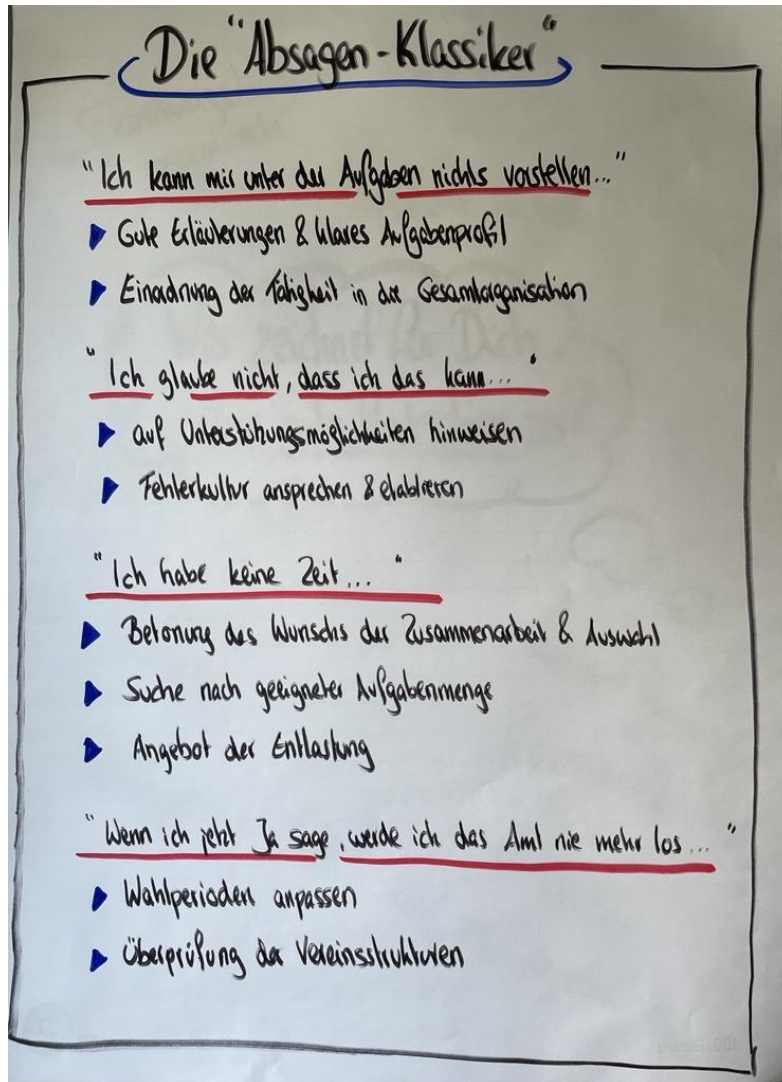 Die "Absagen-Klassiker"
"Ich kann mir unter der Aufgaben nichts vorstellen..."
Gute Erläuterungen & klares Aufgabenprofil
Einordnung der Tätigkeit in die Gesamtorganisation
"Ich glaube nicht, dass ich das kann..."
auf Unterstützungsmöglichkeiten hinweisen
Fehlerkultur ansprechen & etablieren
"Ich habe keine Zeit..."
Betonung des Wunschs der Zusammenarbeit & Auswahl
Suche nach geeigneter Aufgabenmenge
Angebot der Entlastung
"Wenn ich jetzt Ja sage, werde ich das Amt nie mehr los..."
Wahlperioden anpassen
Überprüfung der Vereinsstrukturen